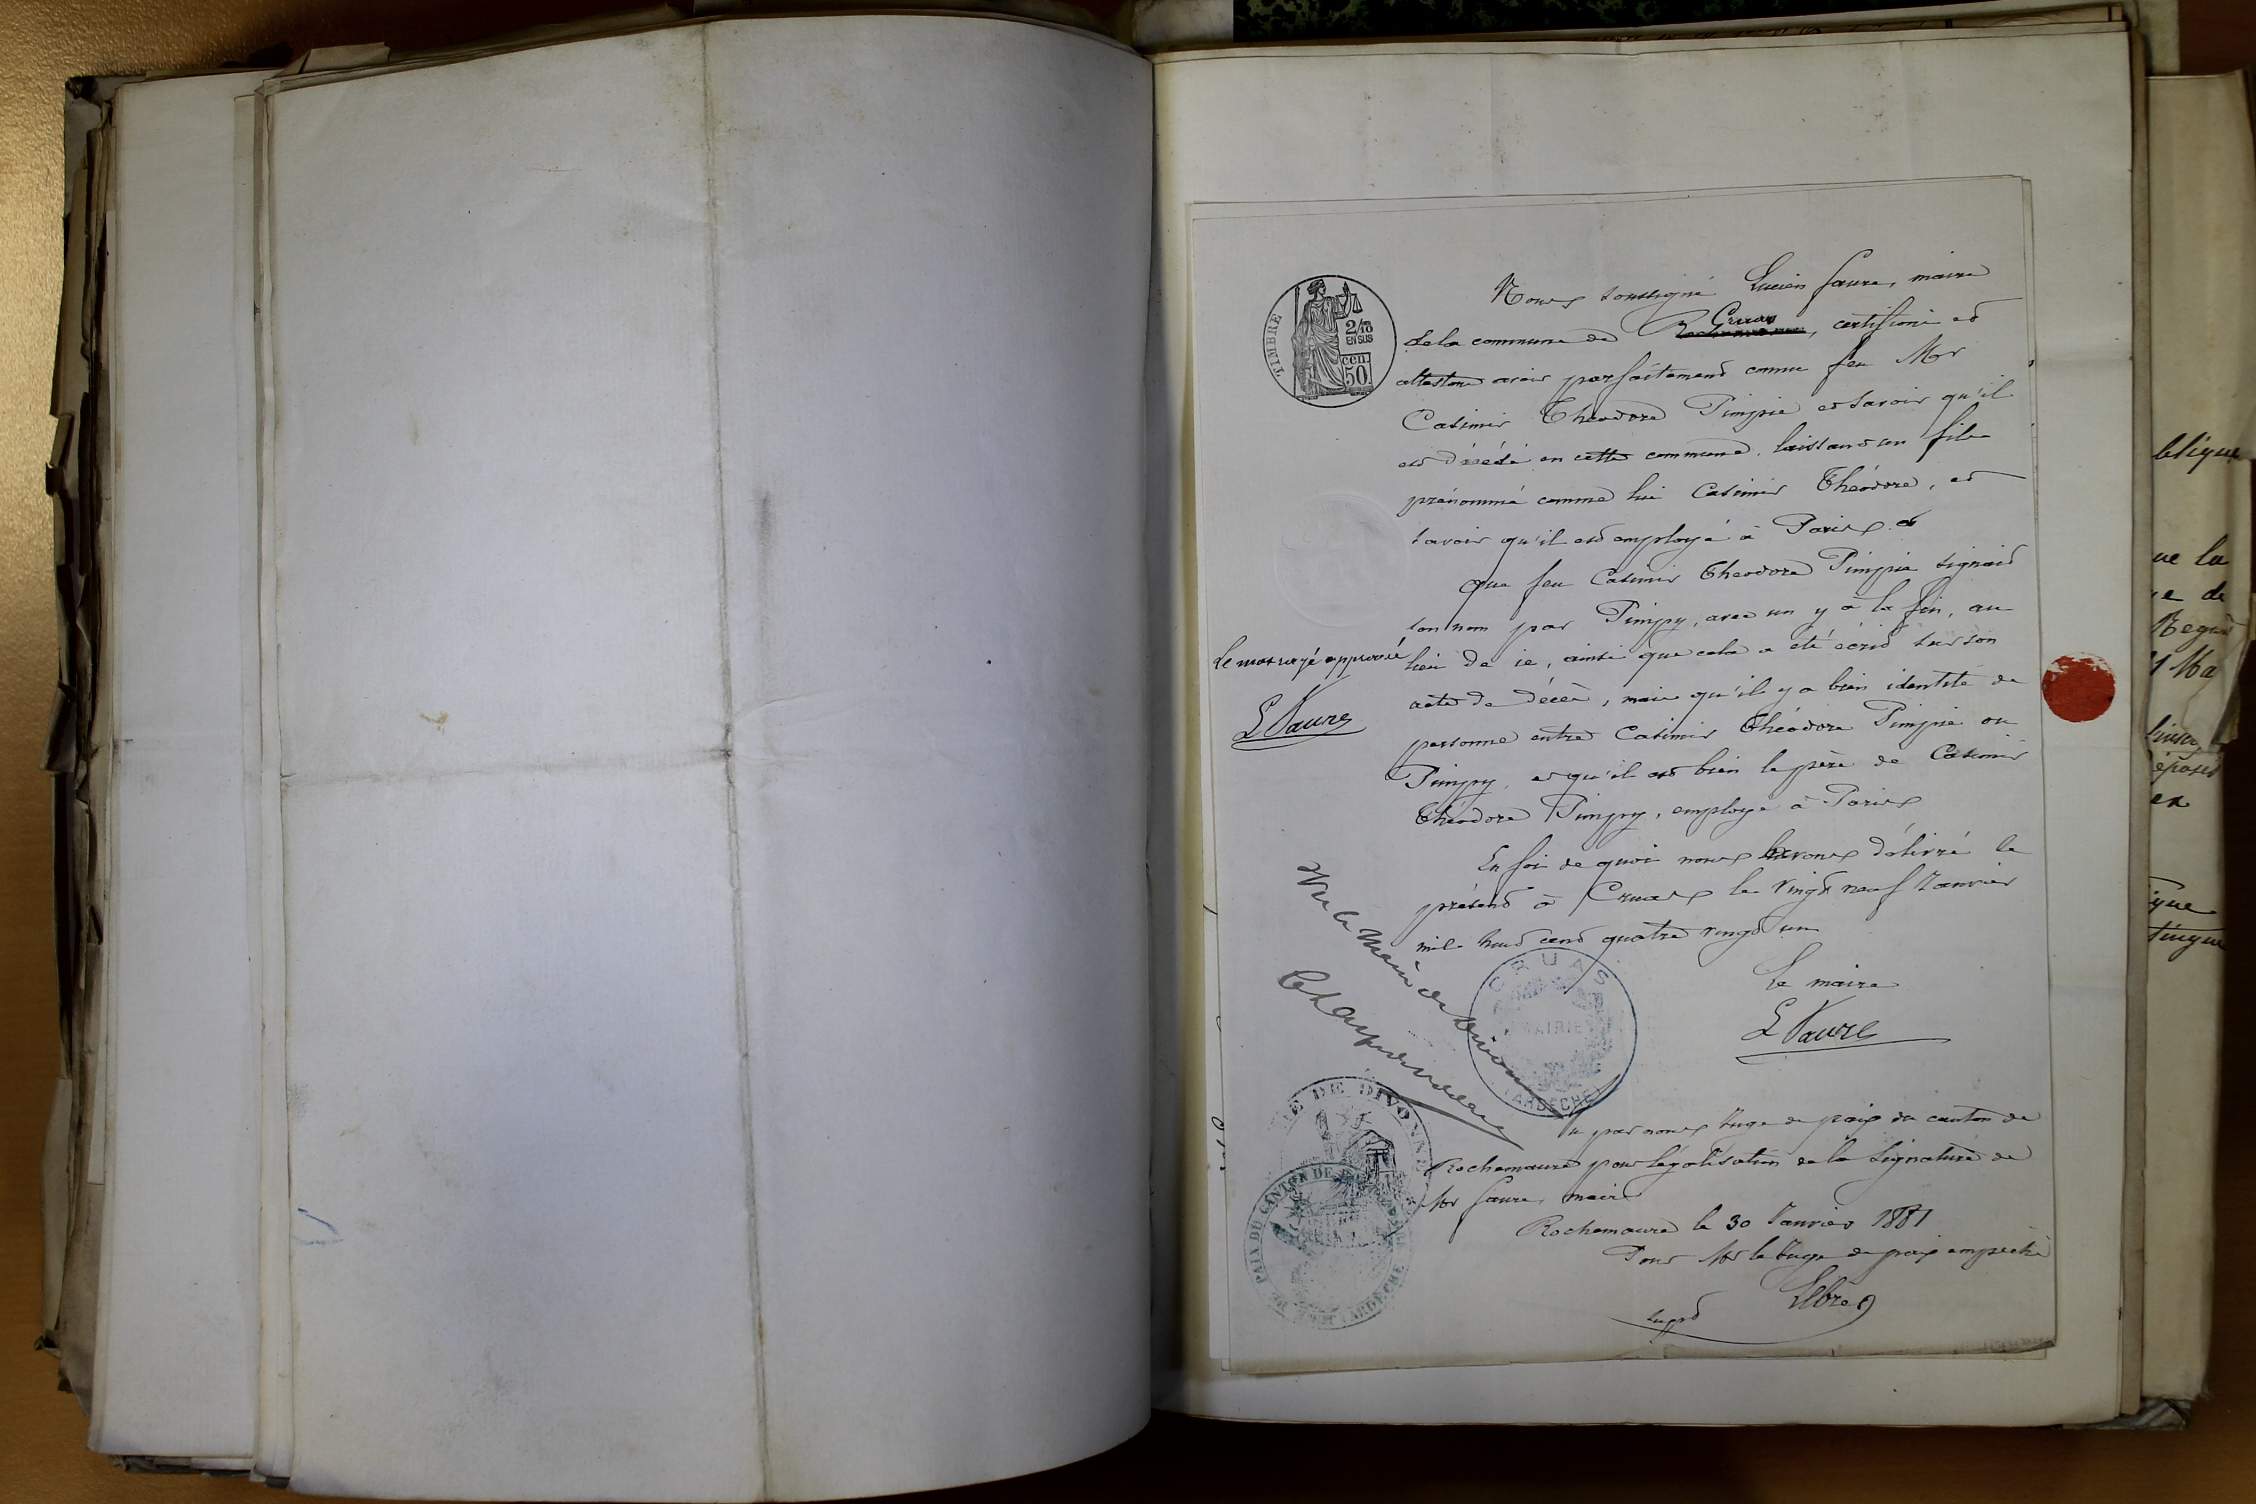 Nous soussigné Lucien Faure, maire
Cruas
de la commune de Rochemaure, certifions et
attestons avoir parfaitement connu feu Mr
Casimir Théodore Pimpie et savoir qu'il
est décédé en cette commune, laissant un fils
prénommé comme lui Casimir Théodore, et
savoir qu'il est employé à Paris et
que feu Casimir Théodore Pimpie signait
son nom par Pimpy, avec un y à la fin, au
lieu de ie, ainsi que cela a été écrit sur son
acte de décès, mais qu'il y a bien identité de
personne entre Casimir Théodore Pimpie ou
Pimpy, et qu'il est bien le père de Casimir
Théodore Pimpy, employé à Paris
En foi de quoi nous avons délivré le
présent à Cruas le vingt neuf Janvier
mil huit cent quatre vingt un
Le maire
L Faure
Le mot rayé approuvé
L Faure
TIMBRE
2/10
EN SUS
cen.
50
CRUAS
MAIRIE
(ARDÈCHE)
Vu la Mairie de Divonne
Vu par nous Juge de paix du canton de
Rochemaure pour légalisation de la signature de
Mr Faure, maire
Rochemaure le 30 Janvier 1881
Pour Mr le Juge de paix empêché
Lebre
supt
MAIRIE DE DIVONNE
PAIX DU CANTON DE
ARDÈCHE
blique
ue la
de
1 Ma
éposés
en